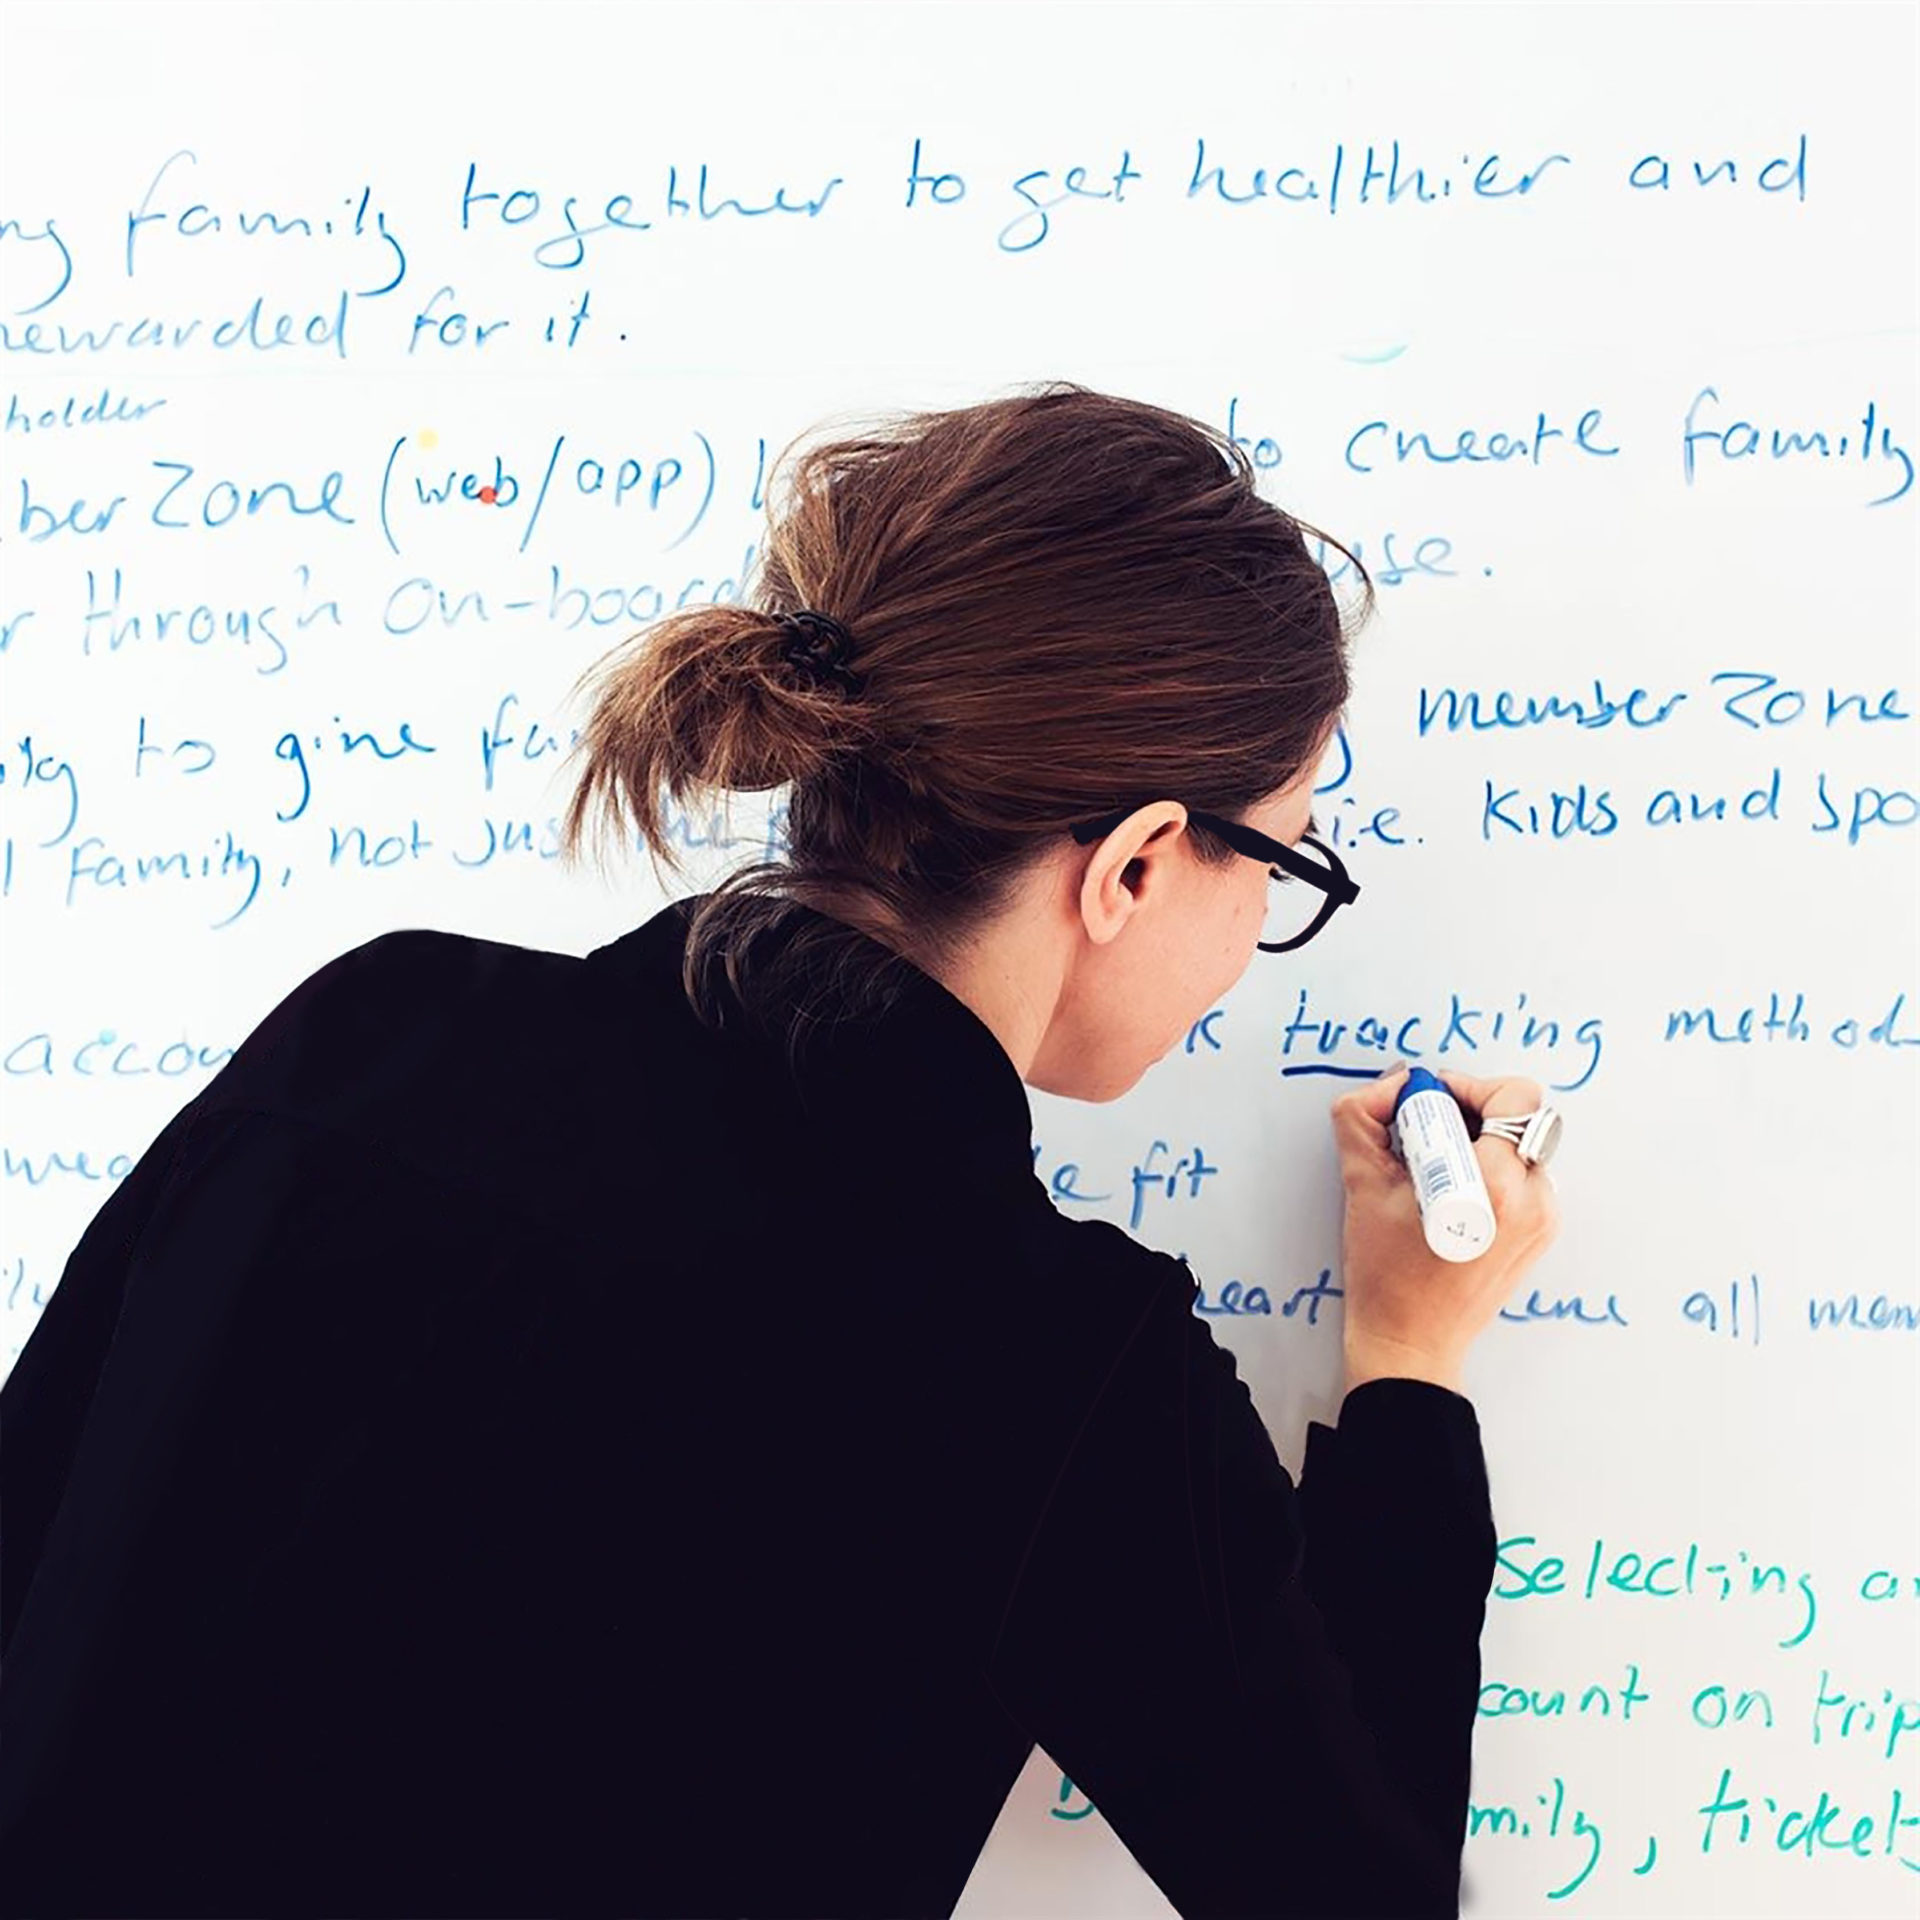 family together to get healthier and
rewarded for it.
holder
ber Zone (web/app) to create family
through on-board use.
to give member Zone
family, not i.e. Kids and spo
accou tracking method
fit
heart all mem
Selecting
count on trip
mily, tickets